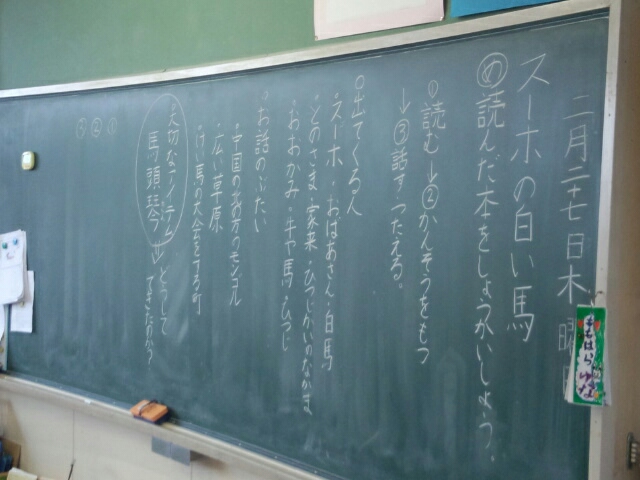 二月二十七日木曜日
スーホの白い馬
め 読んだ本をしょうかいしよう。
① 読む→②かんそうをもつ
→③話す・つたえる。
○出てくる人
・スーホ ・おばあさん・白馬
・とのさま・家来・ひつじかいのなかま
・おおかみ ・牛や馬・ひつじ
○お話のぶたい
・中国の北の方のモンゴル
・広い草原
・けい馬の大会をする町
・大切なアイテム
馬頭琴
どうして
できたのか?
①②③